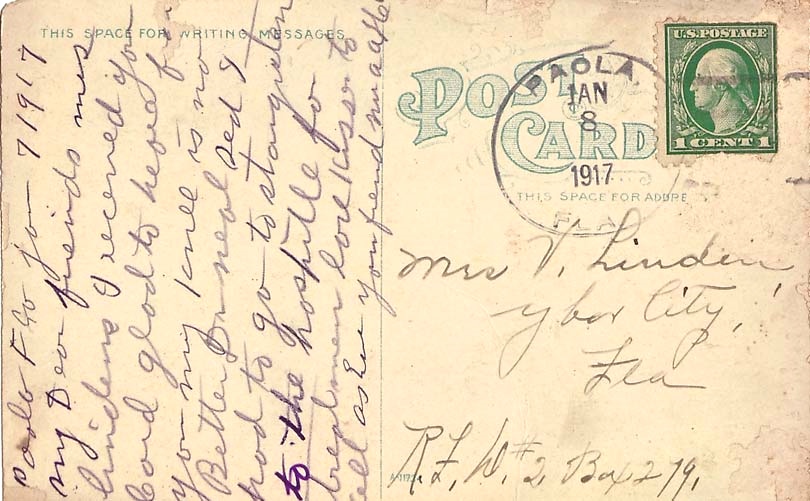 THIS SPACE FOR WRITING MESSAGES
Paola Fla Jan 7 1917
my Dear friends mrs
lindens I received you
Card glad to hear f
you my knee is no
Better Dr neal sed I
had to go to
to the hospitle fo
love kisses to
all as ever you frend
POST CARD
PAOLA,
JAN
8
1917
FLA
U.S. POSTAGE
1 CENT 1
THIS SPACE FOR ADDRE
Mrs V. Linden,
ybor City,
Fla
R.F.D. #2 Box 279.